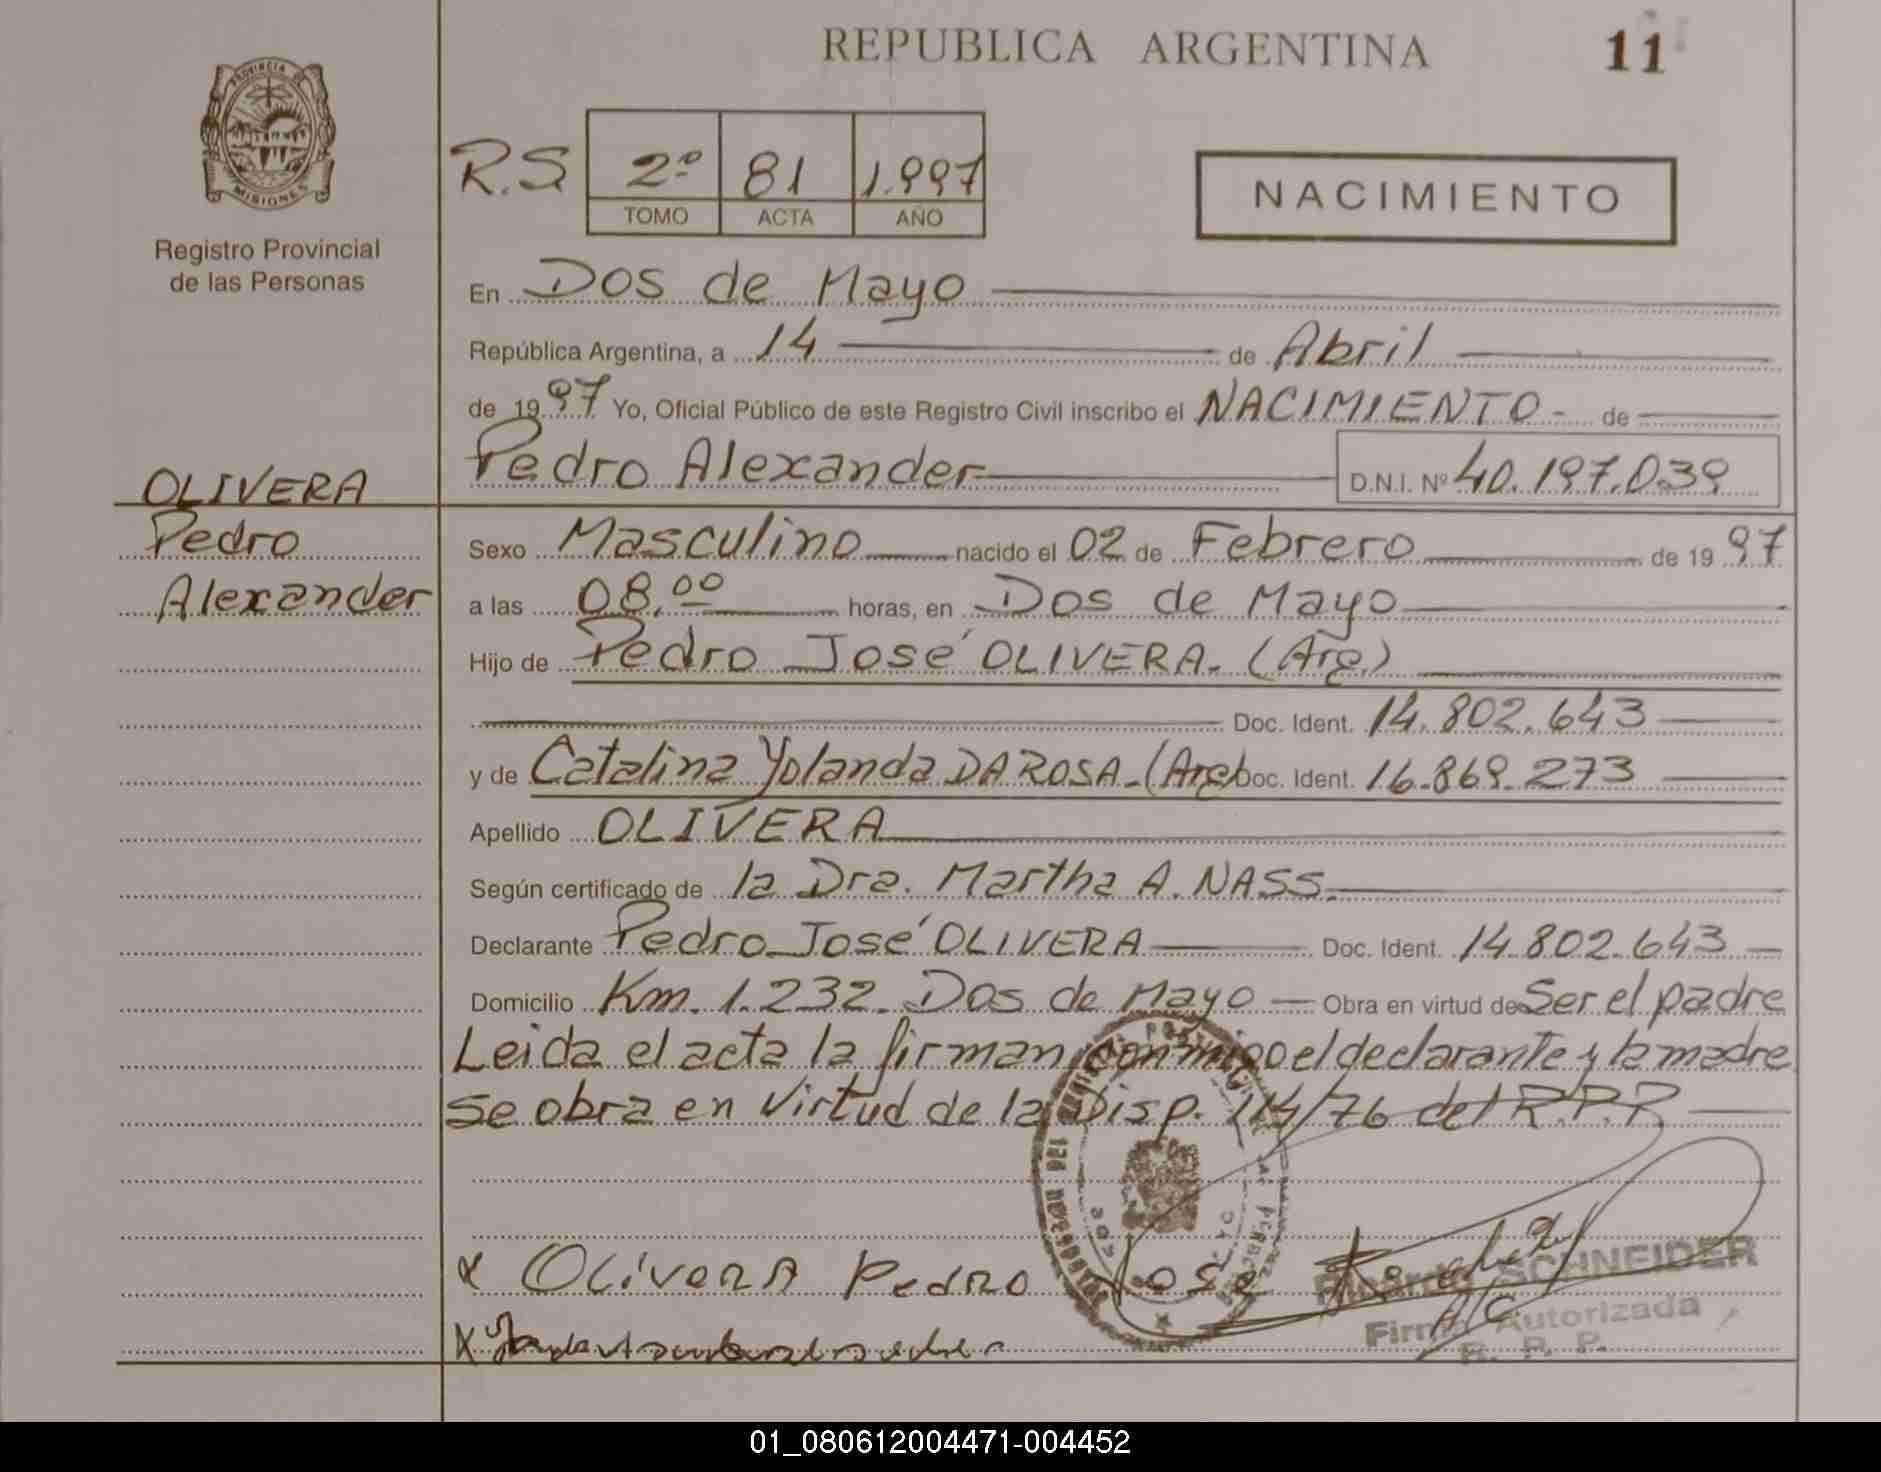 REPUBLICA ARGENTINA
11
PROVINCIA DE
MISIONES
Registro Provincial
de las Personas
R.S 2º 81 1.997
TOMO ACTA AÑO
NACIMIENTO
En Dos de Mayo
República Argentina, a 14 de Abril
de 1997 Yo, Oficial Público de este Registro Civil inscribo el NACIMIENTO - de
Pedro Alexander D.N.I. Nº 40.197.039
OLIVERA
Pedro
Alexander
Sexo Masculino nacido el 02 de Febrero de 1997
a las 08,00 horas, en Dos de Mayo
Hijo de Pedro José OLIVERA. (Arg.)
Doc. Ident. 14.802.643
y de Catalina Yolanda DA ROSA - (Arg) Doc. Ident. 16.869.273
Apellido OLIVERA
Según certificado de la Dra. Martha A. NASS.
Declarante Pedro José OLIVERA Doc. Ident. 14.802.643
Domicilio Km. 1.232. Dos de Mayo Obra en virtud de Ser el padre
Leida el acta la firman conmigo el declarante y la madre
se obra en virtud de la Disp. 114/76 del R.P.P.
x OLivera Pedro Jose
Ricardo SCHNEIDER
A/C.
Firma Autorizada
R. P. P.
x
01_080612004471-004452